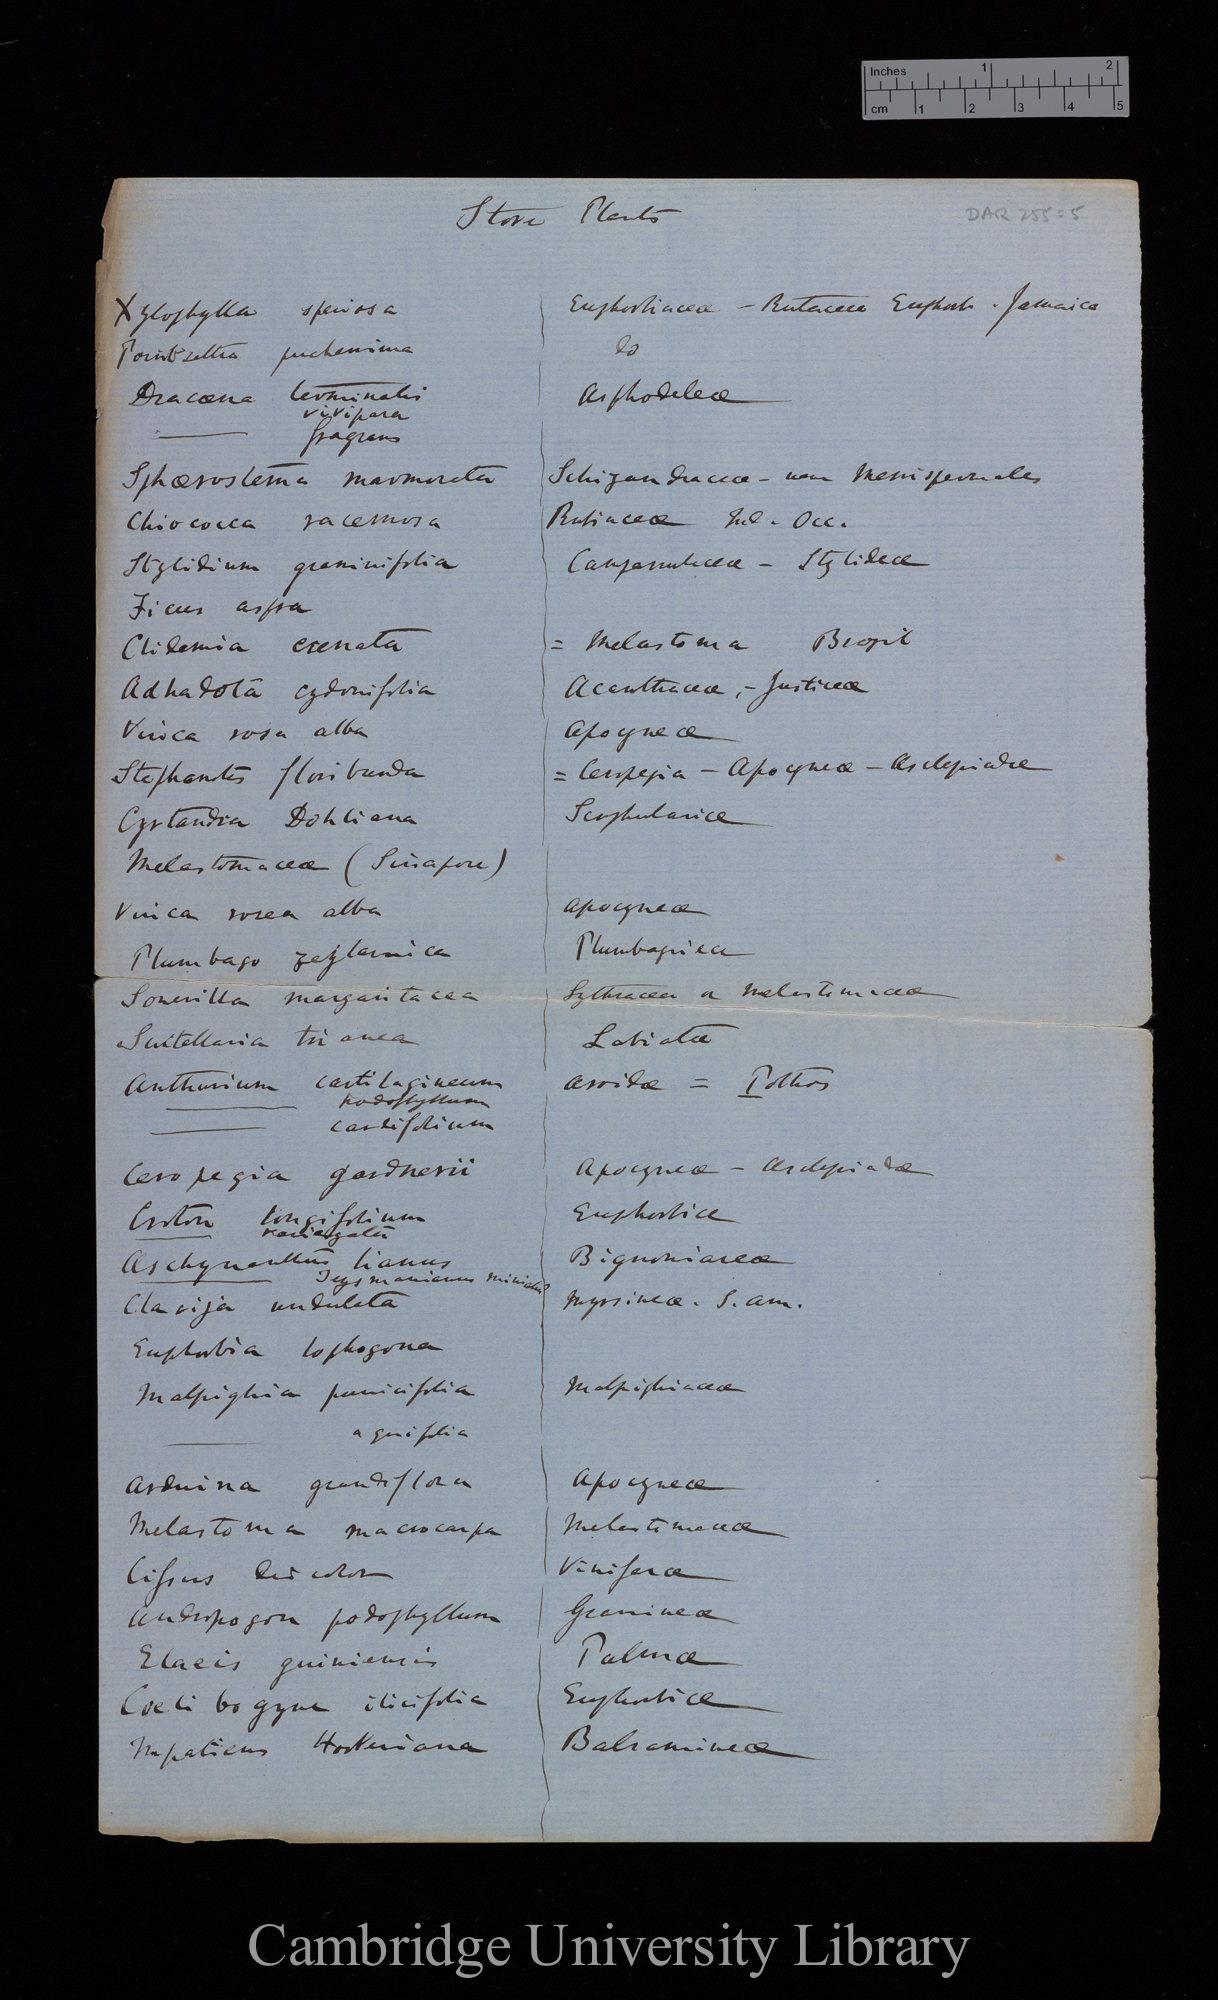 Inches 1 2
cm 1 2 3 4 5
Stove Plants
DAR 255:5
Xylophylla speciosa Euphorbiaceæ – Rutaceæ Euphorb. Jamaica
Poinsettia pulcherrima do
Dracæna terminalis Asphodeleæ
vivipara
—— fragrans
Sphærostema marmorata Schizandraceæ – near Menispermales
Chiococca racemosa Rubiaceæ Ind. Occ.
Stylidium graminifolia Campanulaceæ – Stylideæ
Ficus aspra
Clidemia crenata = Melastoma Brazil
Adhadota cydonifolia Acanthaceæ, – Justiceæ
Vinca rosa alba Apocyneæ
Stephanotis floribunda = Ceropegia – Apocyneæ – Asclepiadæ
Cyrtandra Dohliana Scrophulariæ
Melastomaceæ (Sinapore)
Vinca rosea alba Apocyneæ
Plumbago zeylanica Plumbagineæ
Sonerilla margaritacea Lythraceæ or Melastomaceæ
Scutellaria trianea Labiatæ
Anthurium cartilagineum Aroidæ = Pothos
—— podophyllum
—— cordifolium
Ceropegia gardnerii Apocyneæ – Asclepiadæ
Croton longifolium Euphorbiæ
variegata
Æschynanthus lianus Bignoniaceæ
Teysmanianus miniatus
Clavija undulata Myrsineæ. S. Am.
Euphorbia lophogona
Malpighia punicifolia Malpighiaceæ
—— aquifolia
Arduina grandiflora Apocyneæ
Melastoma macrocarpa Melastomaceæ
Cissus discolor Viniferæ
Andropogon podophyllum Gramineæ
Elaeis guiniensis Palmæ
Coelibogyne ilicifolia Euphorbiæ
Impatiens Hookeriana Balsamineæ
Cambridge University Library